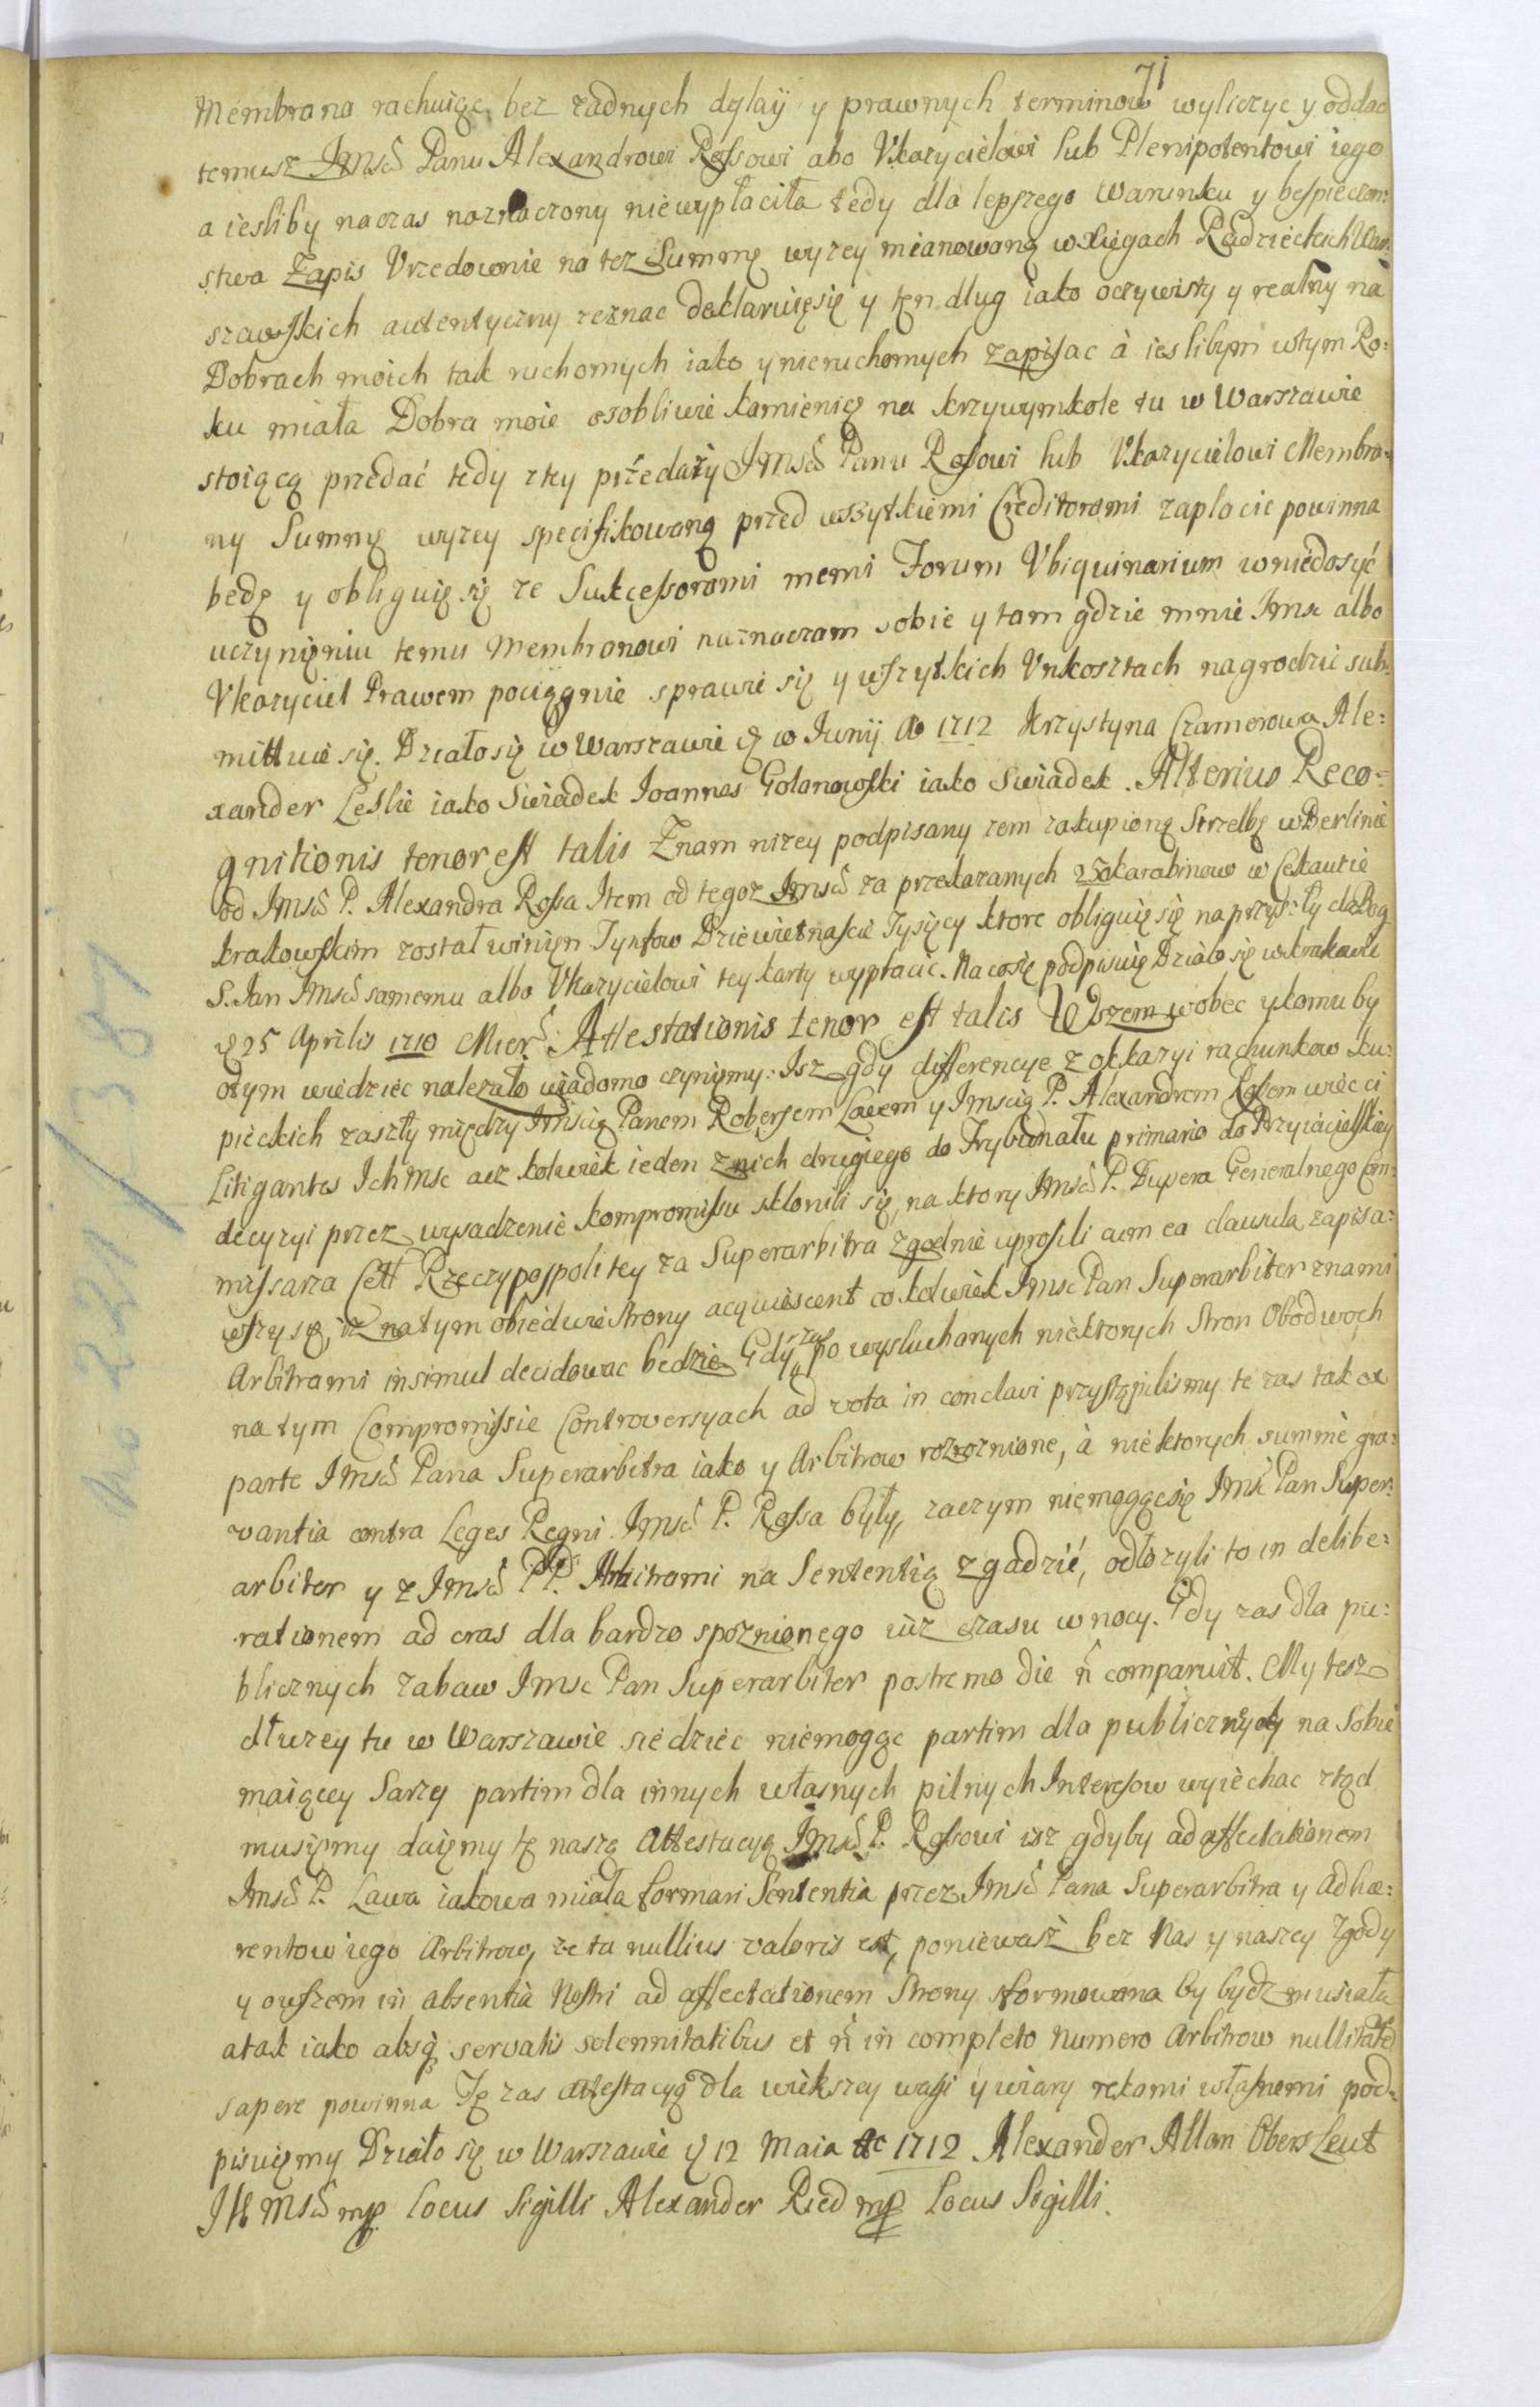 71
Membrana rachuiąc bez zadnych dylaÿ y prawnych terminow wyliczyc y oddac
temusz Jmsći Panu Alexandrowi Rossowi abo Vkazycielowi lub Plenipotentowi iego
a iesliby naczas naznaczony niewypłaciła tedy dla lepszego Warunku y bespieczen:
stwa Zapis Vrzedownie na tez Summę wyzey mianowaną w Xięgach Radzieckich War:
szawskich autentyczny zeznac deklaruięsię y ten dlug iako oczywisty y realny na
Dobrach moich tak ruchomych iako y nieruchomych zapisac à ieslibym wtym Ro:
ku miała Dobra moie osobliwie kamienicę na krzywymkole tu w Warszawie
stoiącą przedać tedy z tey przedaży Jmsći Panu Rossowi lub Vkazycielowi Membra:
ny Summę wyzey specifikowaną przed wszytkiemi Creditorami zaplacic powinna
będę y obliguię się ze Sukcessorami memi Forum Vbiquinarium wniedosyć
uczynięniu temu Membranowi naznaczam sobie y tam gdzie mnie Jmsc albo
Vkazyciel Prawem pociągnie sprawić się y wszytkich Vnkosztach nagrodzic sub:
mittuie się. Działo się w Warszawie w Junij Ao 1712 Krzystyna Czamerowa Ale:
xander Leslie iako Swiadek Joannes Golanowski iako Swiadek. Alterius Reco:
gnitionis tenor est talis Znam nizey podpisany zem zakupioną Strzelbę w Berlinie
od Jmsći P. Alexandra Rossa Item od tegoz Jmsći za przekazanych 250 karabinow w Cekauzie
krakowskim został winięn Tynfow Dziewietnascie Tysięcy ktore obliguię się na przyszły da Bog
S. Jan Jmsći samemu albo Vkazycielowi tey karty wypłacic. Na cosię podpisuię Dzialo się w krakowie
25 Aprilis 1710 Mier. Attestationis tenor est talis Wszem wobec ykomu by
otym wiedziec nalezało wiadomo czynięmy: Isz gdy differencye z okkazyi rachunkow ku:
pieckich zaszły między Jmscią Panem Robersem Lawem y Jmscią P. Alexandrem Rossem więc ci
Litigantes Ichmsc acz kolwiek ieden z nich drugiego do Trybunału primario do Przyiacielskiey
decyzyi przez wysadzenie kompromissu skłonili się, na ktory Jmsći P. Dupera Generalnego Com:
missarza Cell Rzeczypospolitey za Superarbitra zgodnie uprosili cum ea clausula, zapisa:
wszy się, iz natym obiedwie Strony acquiescent cokolwiek Jmsc Pan Superarbiter znami
Arbitrami insimul decidowac bedzie Gdy zas po wysluchanych niektorych Stron Obodwoch
na tym Compromissie Controversyach ad vota in conclavi przystąpilismy te zas tak ex
parte Jmsći Pana Superarbitra iako y Arbitrow rozroznione, à niektorych summè gra:
vantia contra Leges Regni Jmsći P. Rossa były, zaczym niemogącsię Jmsć Pan Super:
arbiter y z Jmsći PP. Arbitrami na Sententią zgadzić, odłozyli to in delibe:
rationem ad cras dla bardzo spoznionego iuz czasu w nocy. Gdy zas dla pu:
blicznych zabaw Jmsc Pan Superarbiter postremo die ñ comparuit. My tesz
dłuzey tu w Warszawie siedziec niemogąc partim dla publicznych na Sobie
maiącey Sarzy partim dla innych własnych pilnych Interesow wyiechac ztąd
musięmy daięmy tę naszą Attestacyą Jmsći P. Rossowi isz gdyby ad affectationem
Jmsći P. Lawa iakowa miała formari Sententia przez Jmsći Pana Superarbitra y Adhæ:
rentow iego Arbitrow, ze ta nullius valoris est, poniewasz bez Nas y naszey Zgody
y owszem in absentia Nostri ad affectationem Strony sformowana by bydz musiała
atak iako absq servatis solennitatibus et ñ in completo numero Arbitrow nullitate
sapere powinna Tę zas attestacyą dla większey wagi y wiary rekami własnemi pod:
pisuięmy Działo się w Warszawie 12 Maia Ac 1712 Alexander Allan Obers Leut
JK Msći mp Locus Sigilli Alexander Ried mp Locus Sigilli.
No 221/387